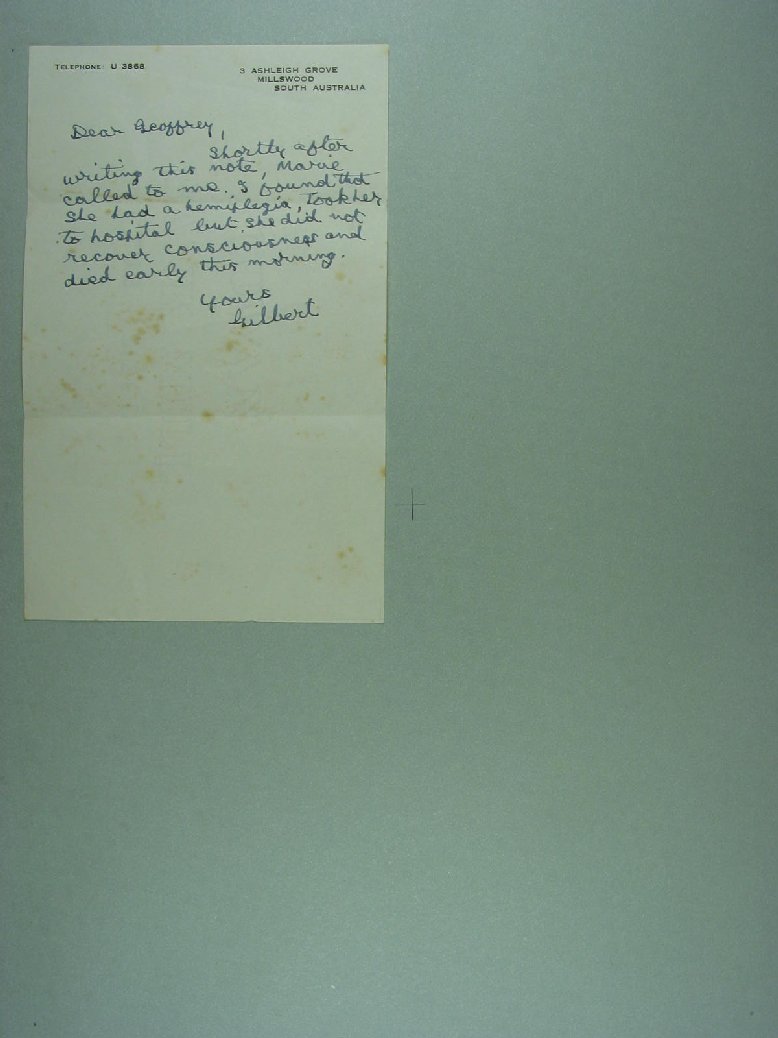 TELEPHONE: U 3868
3 ASHLEIGH GROVE
MILLSWOOD
SOUTH AUSTRALIA
Dear Geoffrey,
Shortly after
writing this note, Marie
called to me. I found that
she had a hemiplegia, Took her
to hospital but she did not
recover consciousness and
died early this morning.
Yours
Gilbert